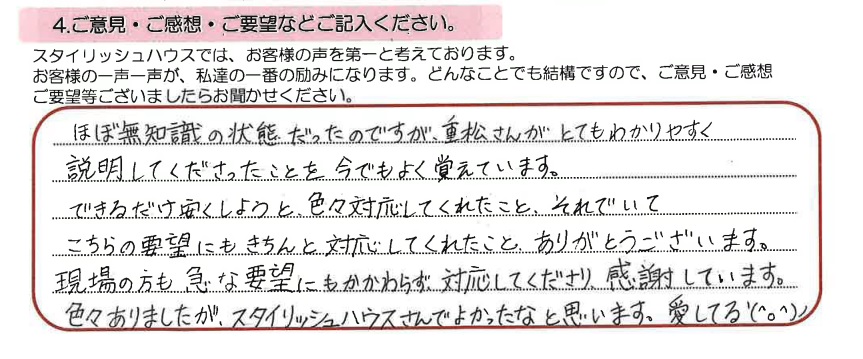 4.ご意見・ご感想・ご要望などご記入ください。
スタイリッシュハウスでは、お客様の声を第一と考えております。
お客様の一声一声が、私達の一番の励みになります。どんなことでも結構ですので、ご意見・ご感想
ご要望等ございましたらお聞かせください。
ほぼ無知識の状態だったのですが、重松さんがとてもわかりやすく
説明してくださったことを今でもよく覚えています。
できるだけ安くしようと、色々対応してくれたこと、それでいて
こちらの要望にもきちんと対応してくれたこと、ありがとうございます。
現場の方も急な要望にもかかわらず、対応してくださり、感謝しています。
色々ありましたが、スタイリッシュハウスさんでよかったなと思います。愛してる'(^o^)ノ